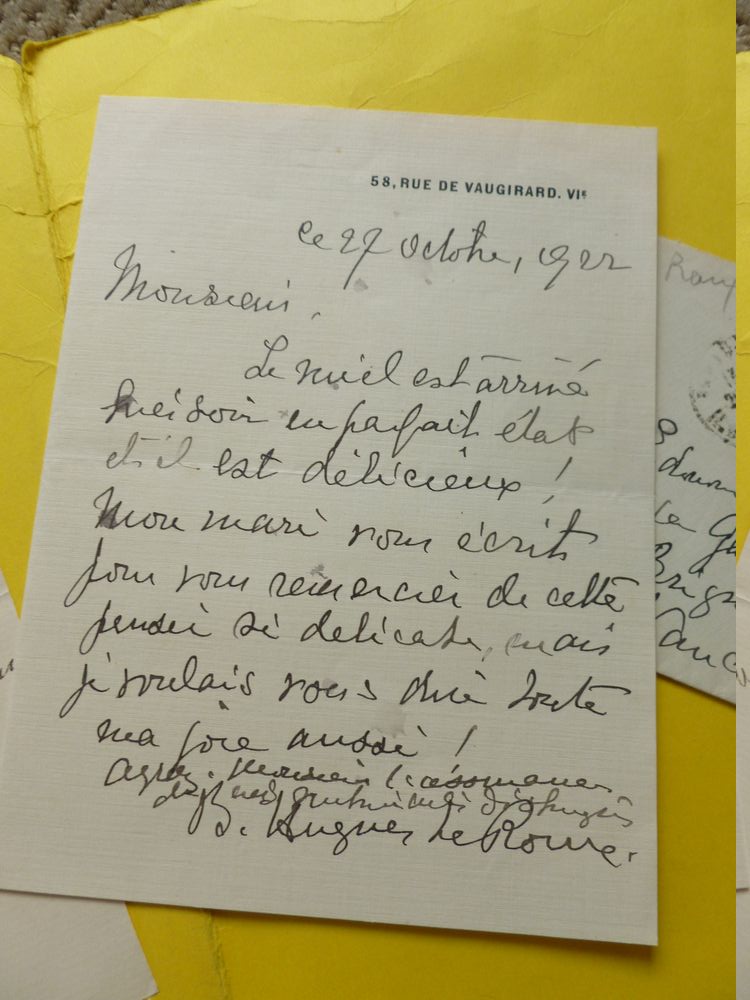 58, RUE DE VAUGIRARD. VIE
ce 27 Octobre, 1922
Monsieur,
Le miel est arrivé
hier soir en parfait état
et il est délicieux !
Mon mari vous écrit
pour vous remercier de cette
pensée si delicate, mais
je voulais vous dire toute
ma joie aussi !
Agréez, Monsieur l'assurance
de mes sentiments distingués
Hugues Le Roux.